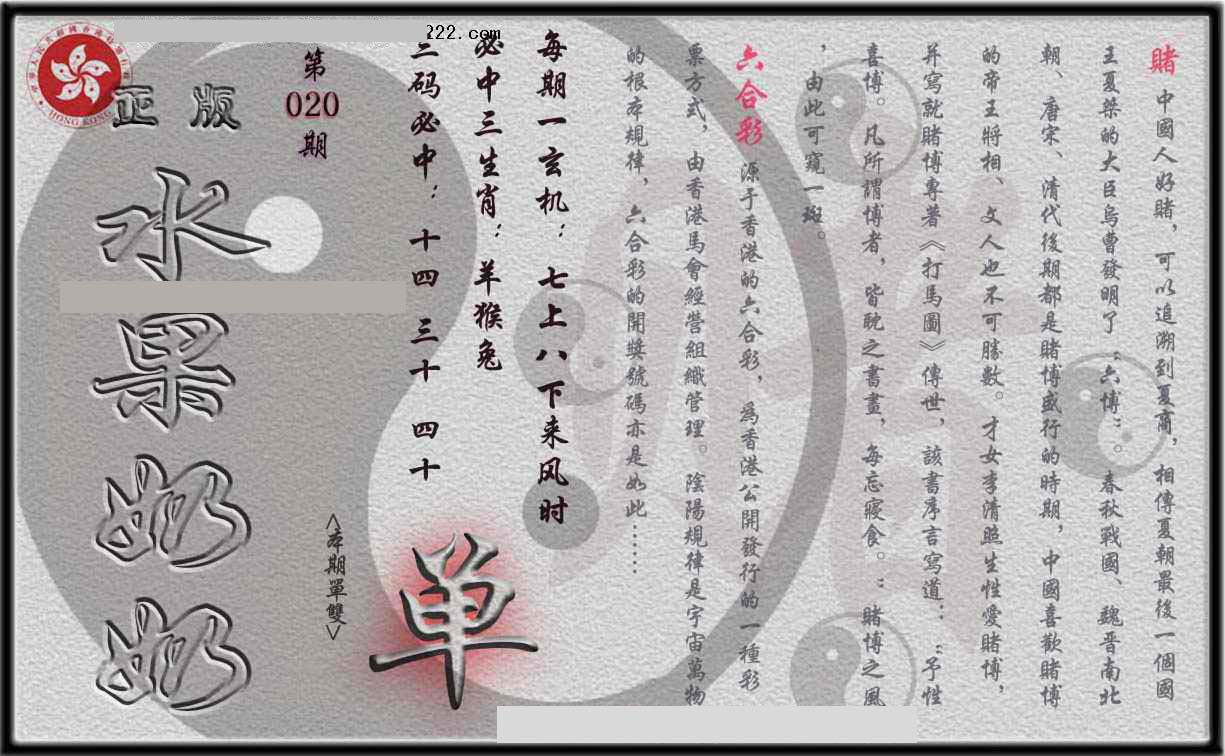 賭 中國人好賭，可以追溯到夏商，相傳夏朝最後一個國
王夏桀的大臣烏曹發明了“六博”。春秋戰國、魏晋南北
朝、唐宋、清代後期都是賭博盛行的時期，中國喜歡賭博
的帝王將相、文人也不可勝數。才女李清照生性愛賭博，
并寫就賭博專著《打馬圖》傳世，該書序言寫道：“予性
喜博。凡所謂博者，皆耽之書晝，每忘寢食。”賭博之風
，由此可窺一斑。
六合彩 源于香港的六合彩，為香港公開發行的一種彩
票方式，由香港馬會經營組織管理。陰陽規律是宇宙萬物
的根本規律，六合彩的開獎號碼亦是如此……
每期一玄机：七上八下来风时
必中三生肖：羊猴兔
二码必中：十四 三十 四十
222.com
第
020
期
<本期單雙>
单
正版
水果奶奶
HONG KONG